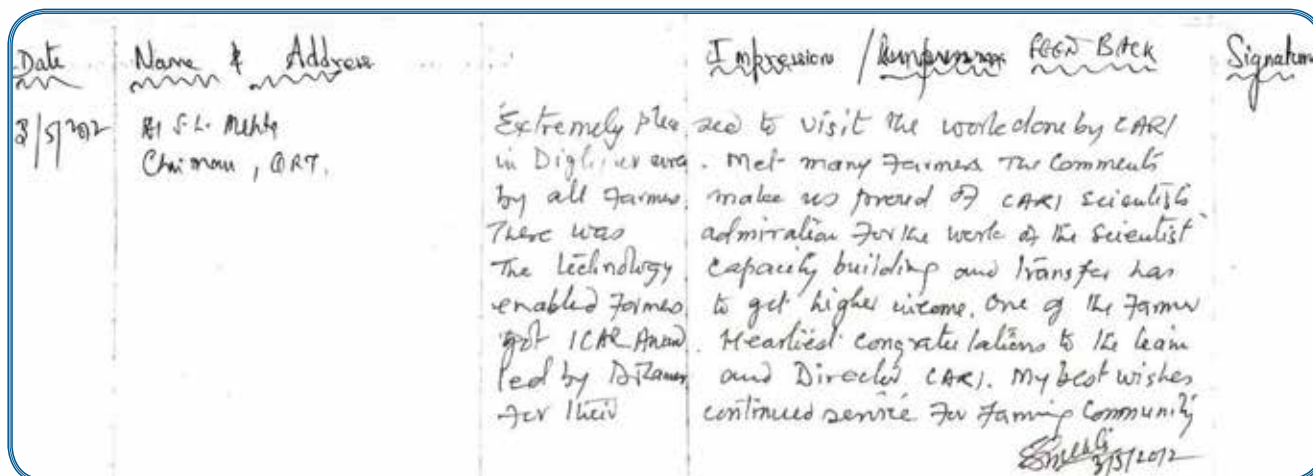 Date Name & Address Impression / FEED BACK Signature
3/5/2012 Dr S.L. Mehta Extremely pleased to visit the work done by CARI
Chairman, QRT. in Diglipur area. Met many Farmers The Comments
by all Farmers make us proud of CARI scientists
There was admiration For the work of the Scientist
The technology capacity building and transfer has
enabled Farmers to get higher income. One of the Farmer
got ICAR Award. Heartiest congratulations to the team
led by and Director CARI. My best wishes
For their continued service For Farming Community
3/5/2012